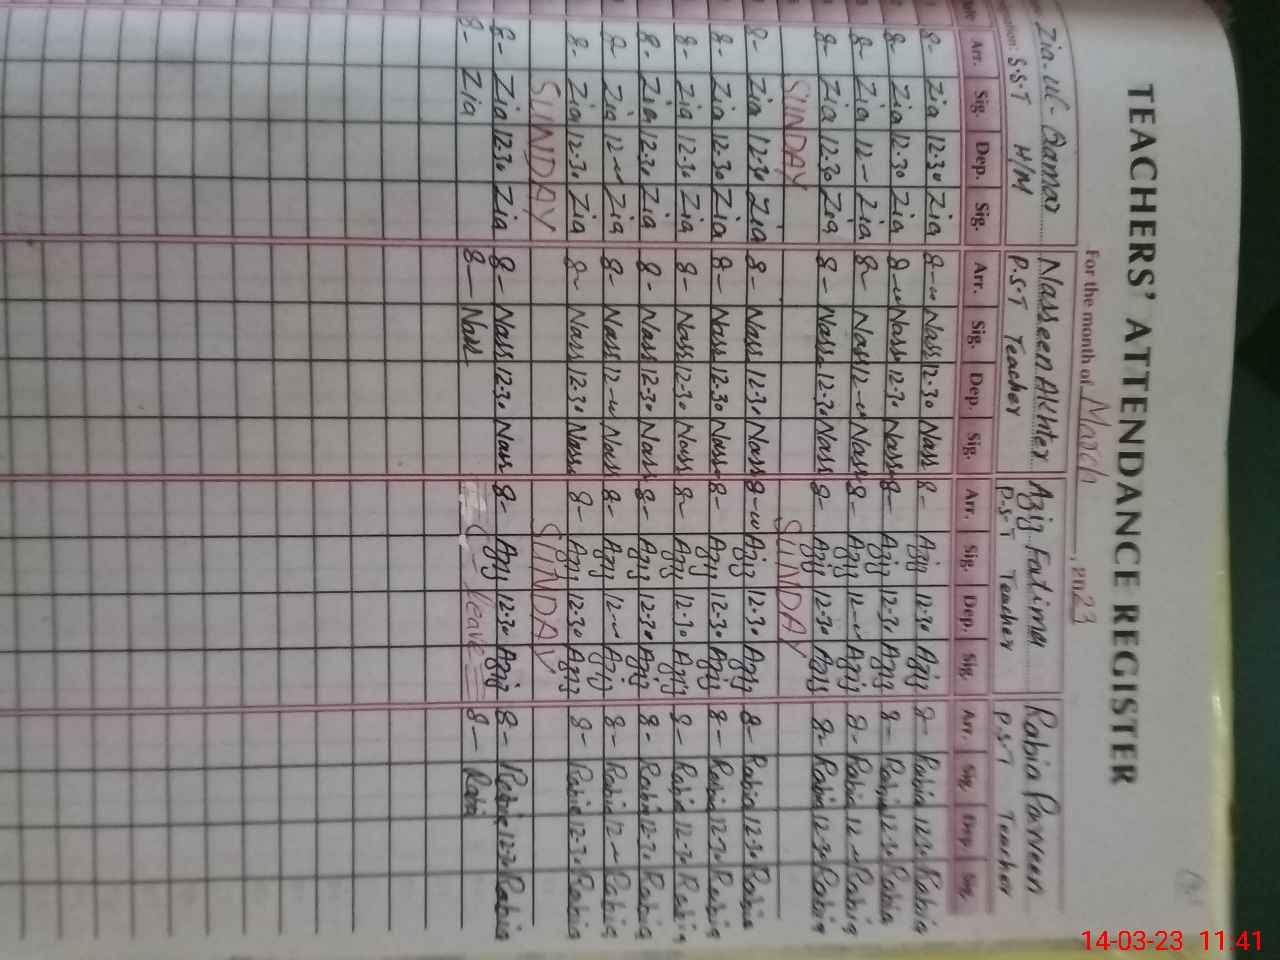 TEACHERS' ATTENDANCE REGISTER
For the month of March, 2023
Zia-ul-Qamar Nasseen Akhter Aziz Fatima Rabia Parveen
S.S.T H/M P.S.T Teacher P.S.T Teacher P.S.T Teacher
Arr. Sig. Dep. Sig. Arr. Sig. Dep. Sig. Arr. Sig. Dep. Sig. Arr. Sig. Dep. Sig.
8- Zia 12.30 Zia 8- Nass 12.30 Nass 8- Aziz 12.30 Aziz 8- Rabia 12.30 Rabia
8- Zia 12.30 Zia 8- Nass 12.30 Nass 8- Aziz 12.30 Aziz 8- Rabia 12.30 Rabia
8- Zia 12- Zia 8- Nass 12- Nass 8- Aziz 12- Aziz 8- Rabia 12- Rabia
8- Zia 12.30 Zia 8- Nass 12.30 Nass 8- Aziz 12.30 Aziz 8- Rabia 12.30 Rabia
SUNDAY SUNDAY
8- Zia 12.30 Zia 8- Nass 12.30 Nass 8- Aziz 12.30 Aziz 8- Rabia 12.30 Rabia
8- Zia 12.30 Zia 8- Nass 12.30 Nass 8- Aziz 12.30 Aziz 8- Rabia 12.30 Rabia
8- Zia 12.30 Zia 8- Nass 12.30 Nass 8- Aziz 12.30 Aziz 8- Rabia 12.30 Rabia
8- Zia 12.30 Zia 8- Nass 12.30 Nass 8- Aziz 12.30 Aziz 8- Rabia 12.30 Rabia
8- Zia 12- Zia 8- Nass 12- Nass 8- Aziz 12- Aziz 8- Rabia 12- Rabia
8- Zia 12.30 Zia 8- Nass 12.30 Nass 8- Aziz 12.30 Aziz 8- Rabia 12.30 Rabia
SUNDAY SUNDAY
8- Zia 12.30 Zia 8- Nass 12.30 Nass 8- Aziz 12.30 Aziz 8- Rabia 12.30 Rabia
8- Zia 8- Nass leave 8- Rabia
14-03-23 11:41